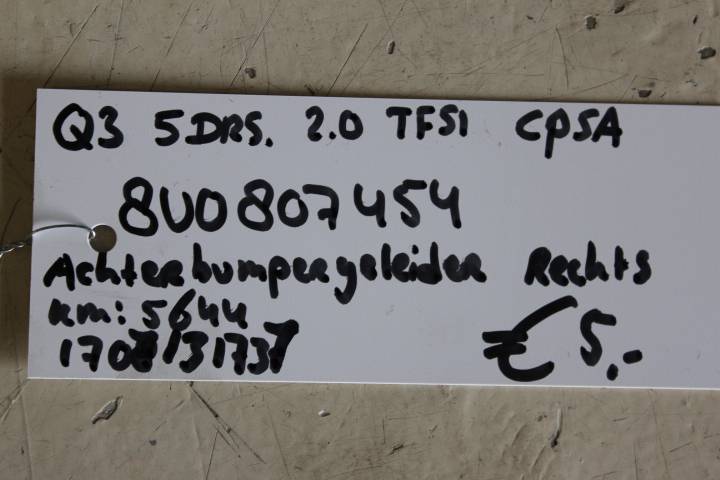 Q3 5DRS. 2.0 TFSI CPSA
8U0807454
Achterbumpergeleider Rechts
km: 5644
€ 5,-